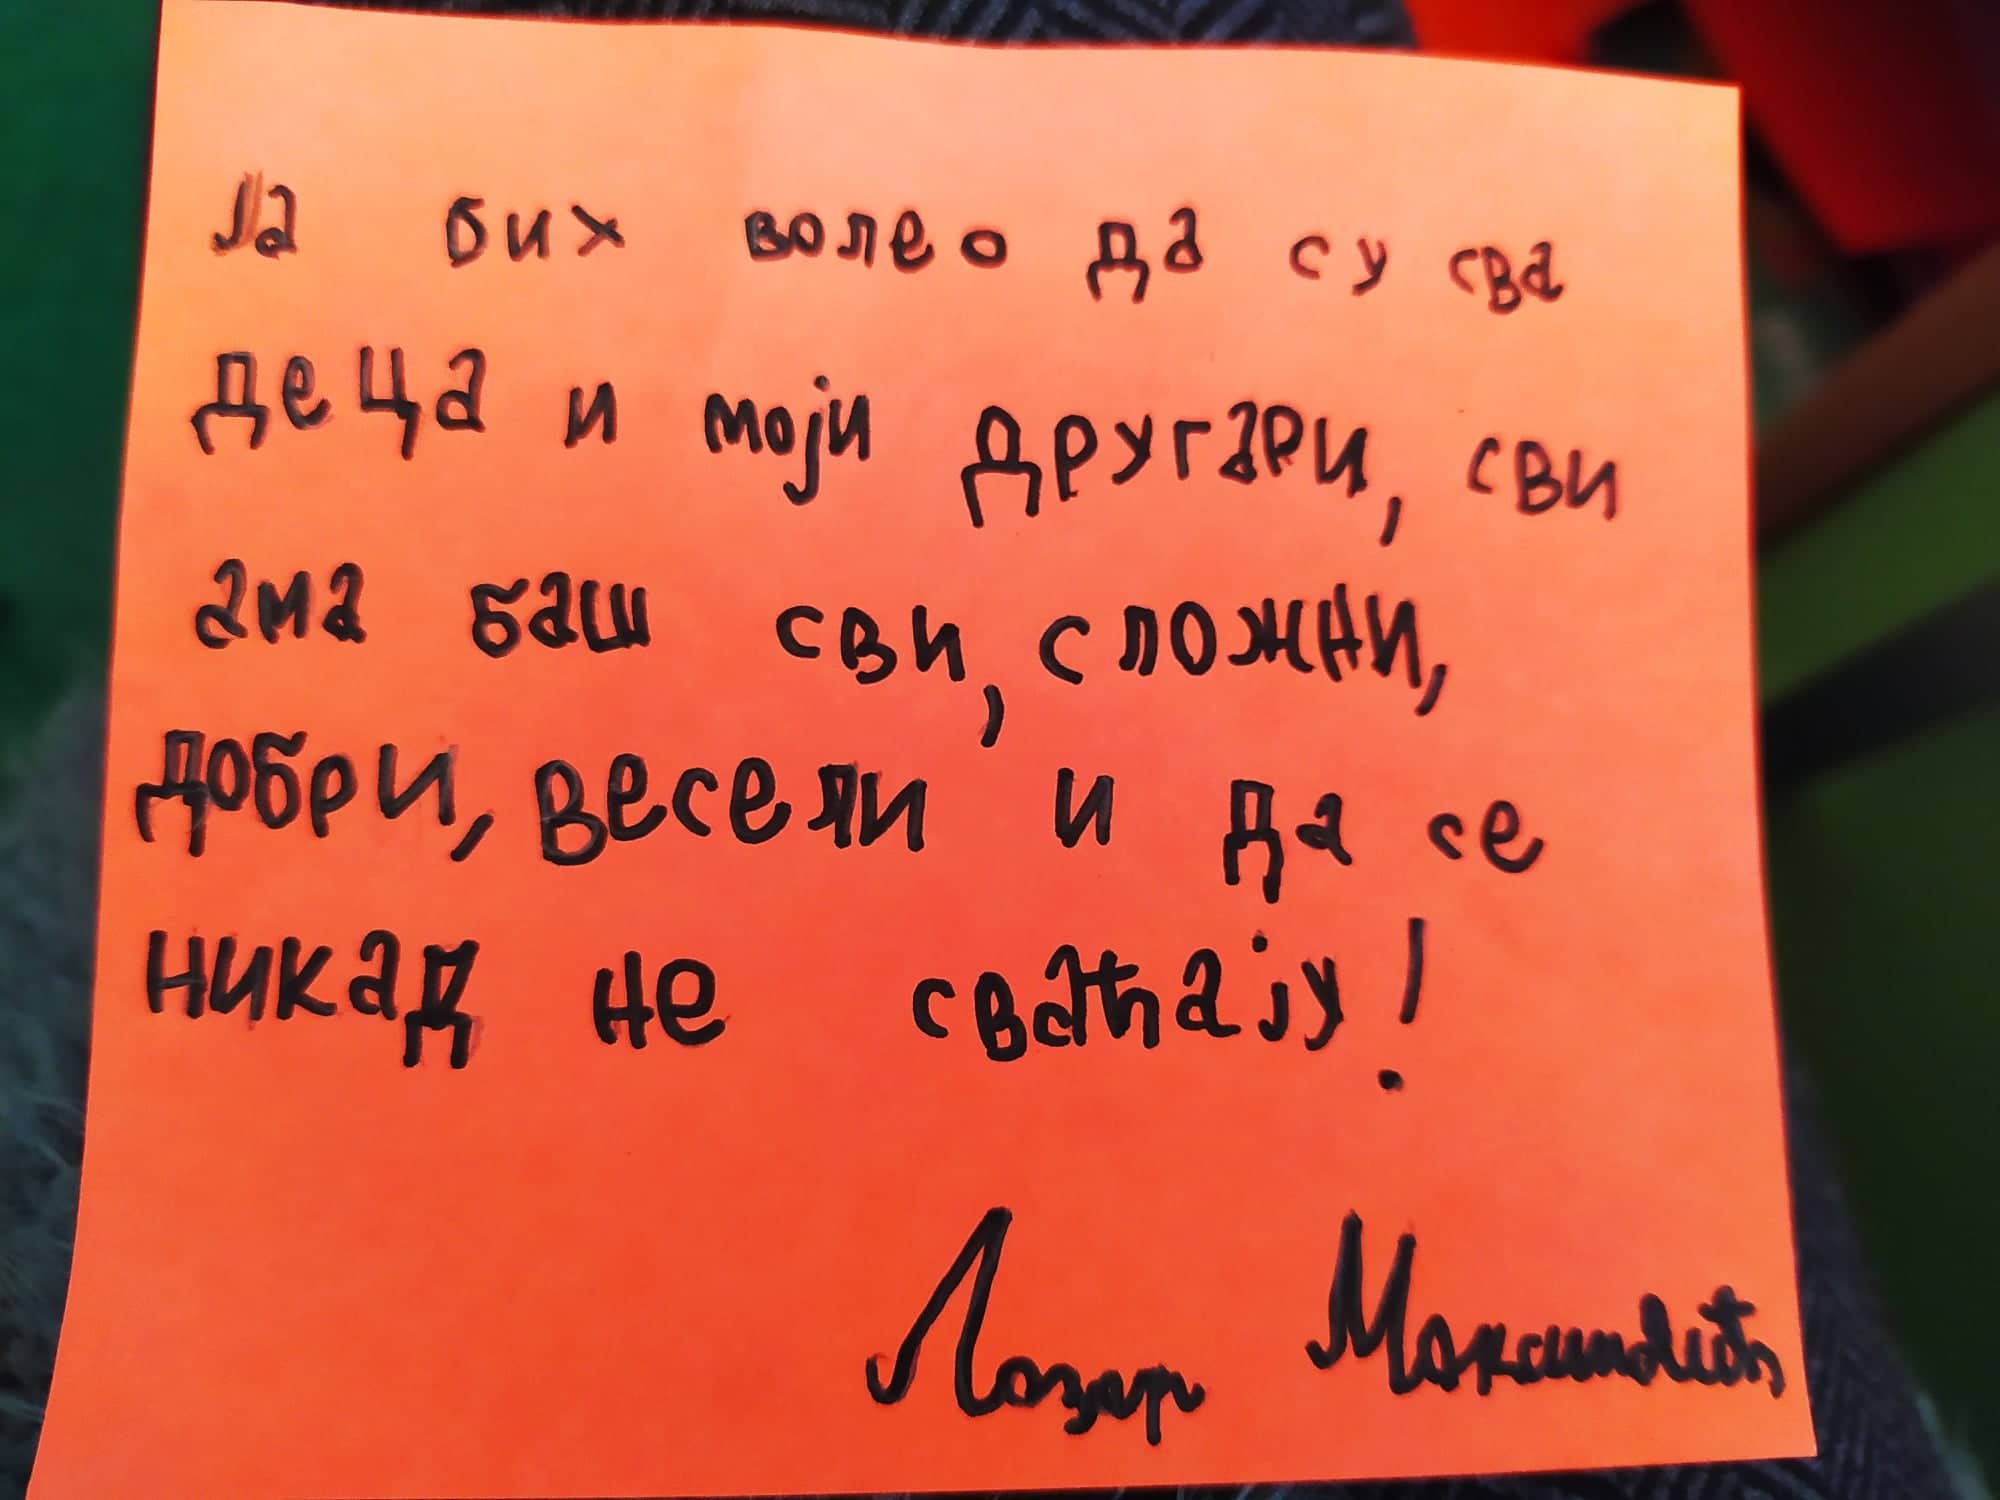 Ја бих волео да су сва
деца и моји другари, сви
ама баш сви, сложни,
добри, весели и да се
никад не сваћају!
Лазар Максимовић